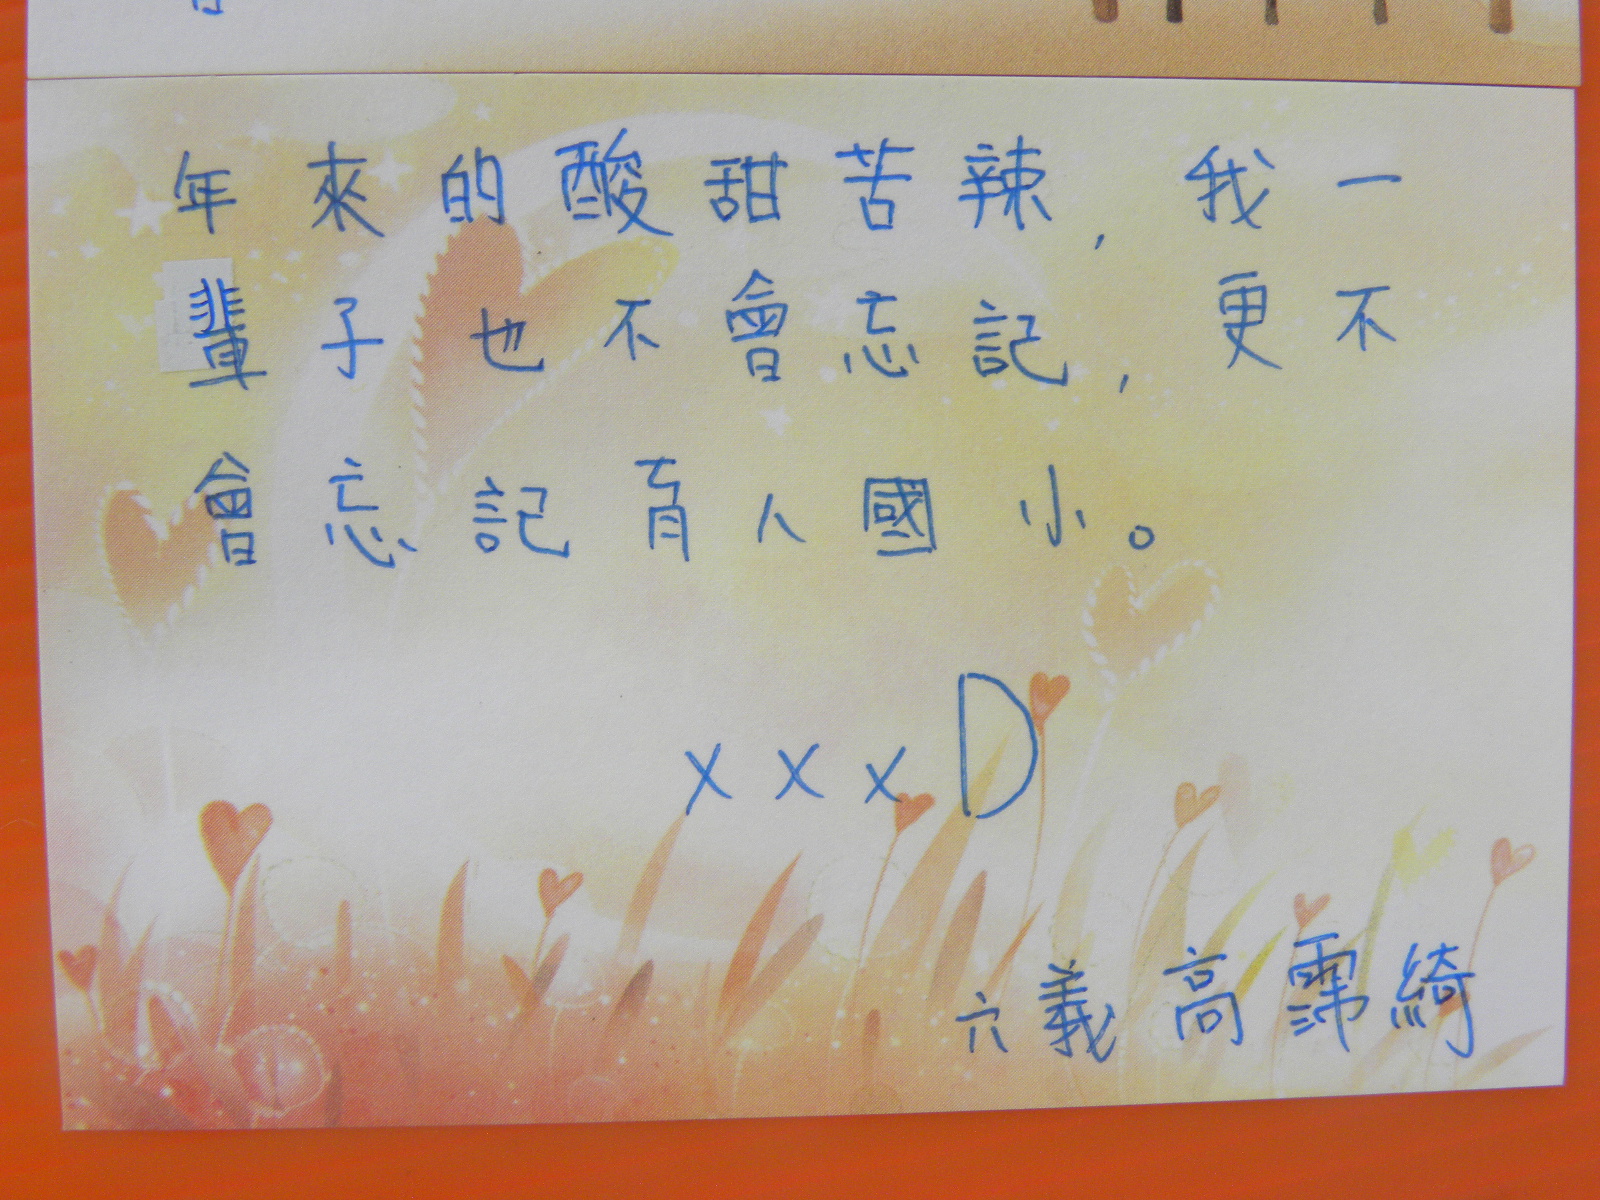 年來的酸甜苦辣，我一
輩子也不會忘記，更不
會忘記育人國小。
x x x D
六義 高霈綺